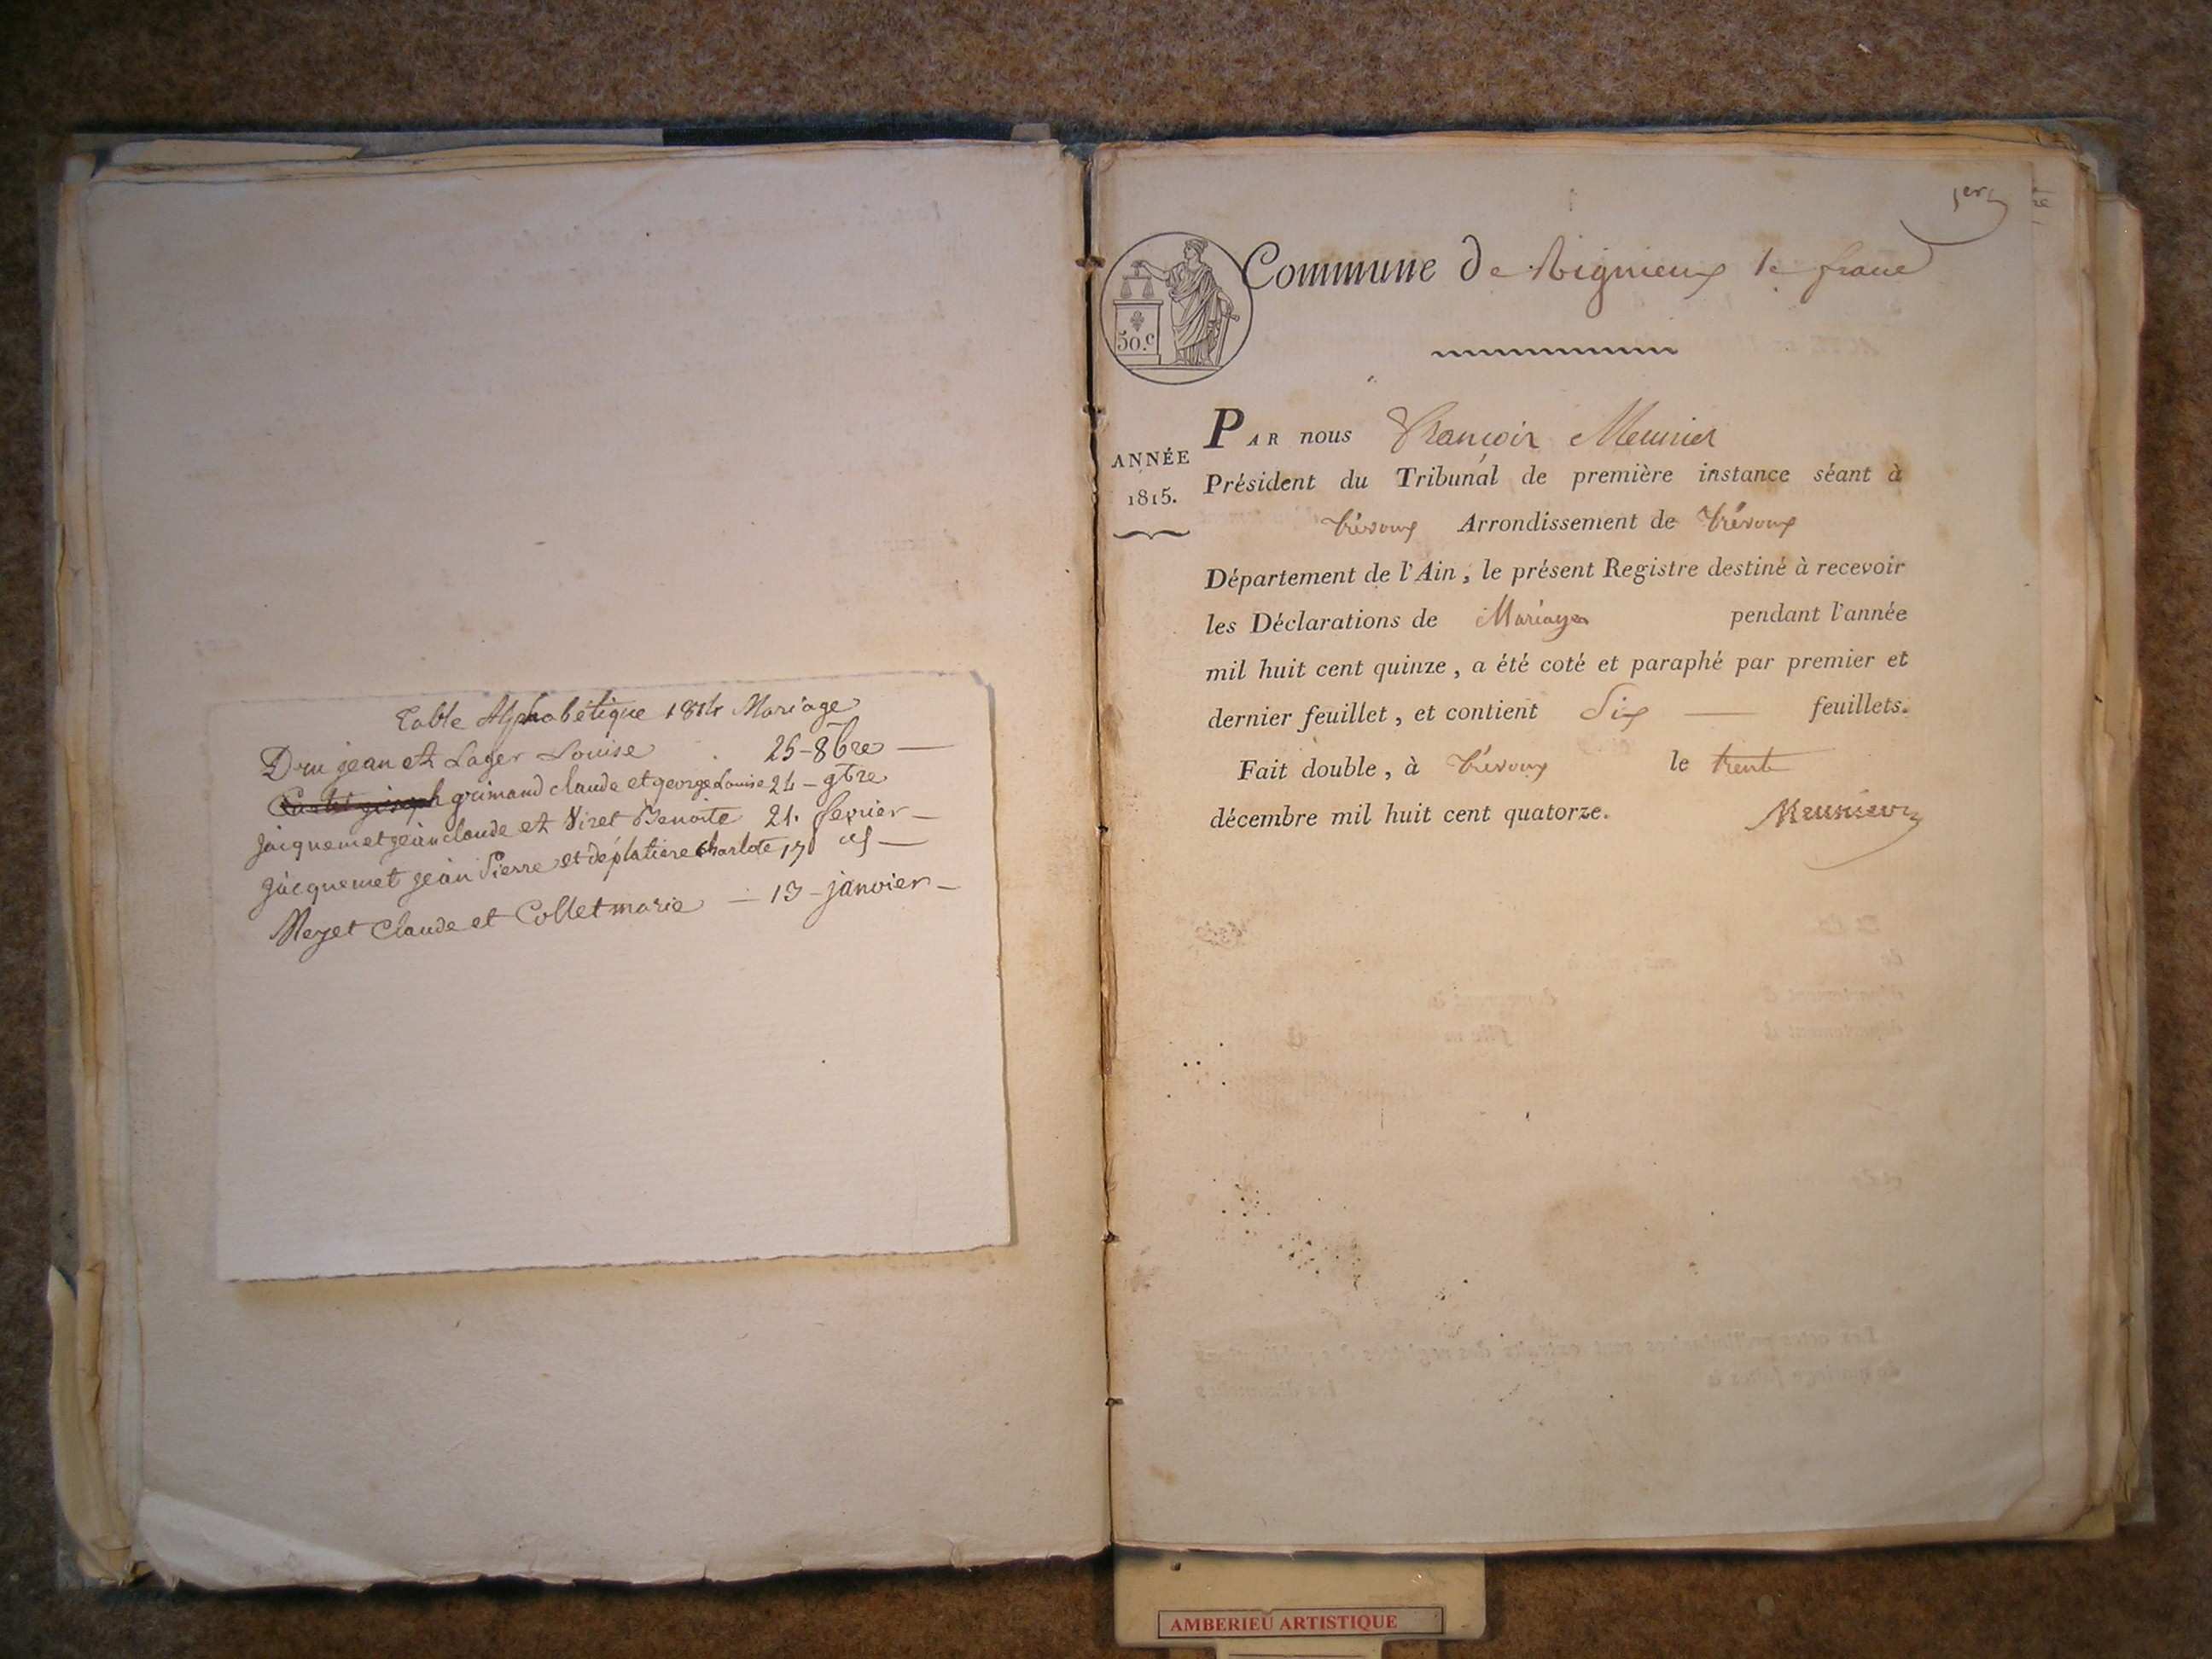 Table Alphabétique 1814 Mariage
Dru jean et Lager Louise 25 - 8bre —
grimand claude et george Louise 24 - 9bre
jacquemet jean claude et Viret Benoite 21. fevrier —
jacquemet jean Pierre et déplatiere charlote 17 —
Meyet Claude et Collet marie — 13 - janvier —
1er
Commune de Rignieux le franc
50.c
ANNÉE
1815.
PAR nous François Meunier
Président du Tribunal de première instance séant à
Trévoux Arrondissement de Trévoux
Département de l'Ain, le présent Registre destiné à recevoir
les Déclarations de Mariages pendant l'année
mil huit cent quinze, a été coté et paraphé par premier et
dernier feuillet, et contient Six — feuillets.
Fait double, à Trévoux le trente
décembre mil huit cent quatorze.
Meunier
AMBERIEU ARTISTIQUE